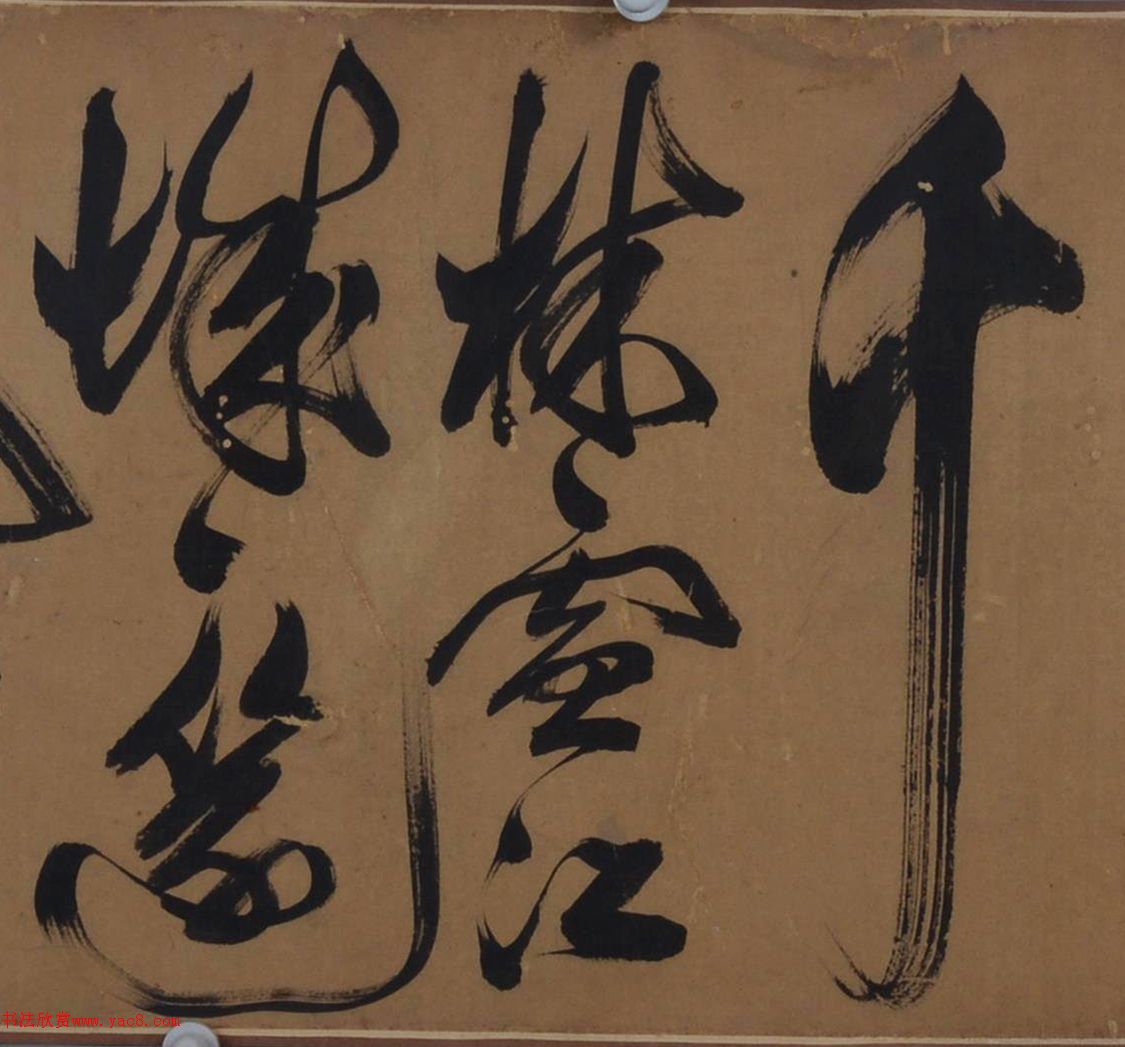 千
林江
城遂
书法欣赏www.yac8.com